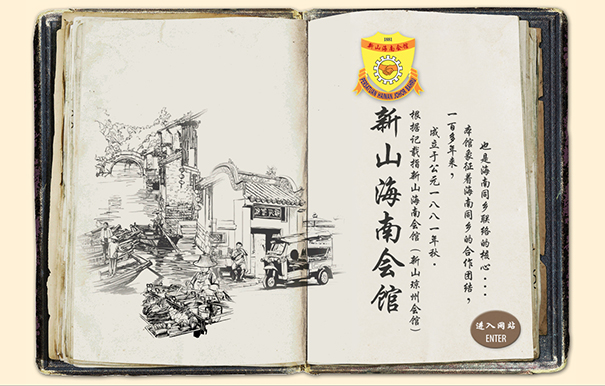 1881
新山海南会馆
PERSATUAN HAINAN JOHOR BAHRU
新山海南会馆
根据记载指新山海南会馆（新山琼州会馆）
成立于公元一八八一年秋.
一百多年来,
本馆象征着海南同乡的合作团结,
也是海南同乡联络的核心...
进入网站
ENTER